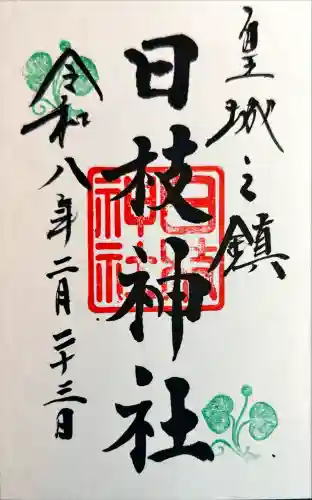 皇城之鎮
日枝神社
令和八年二月二十三日
日枝
神社